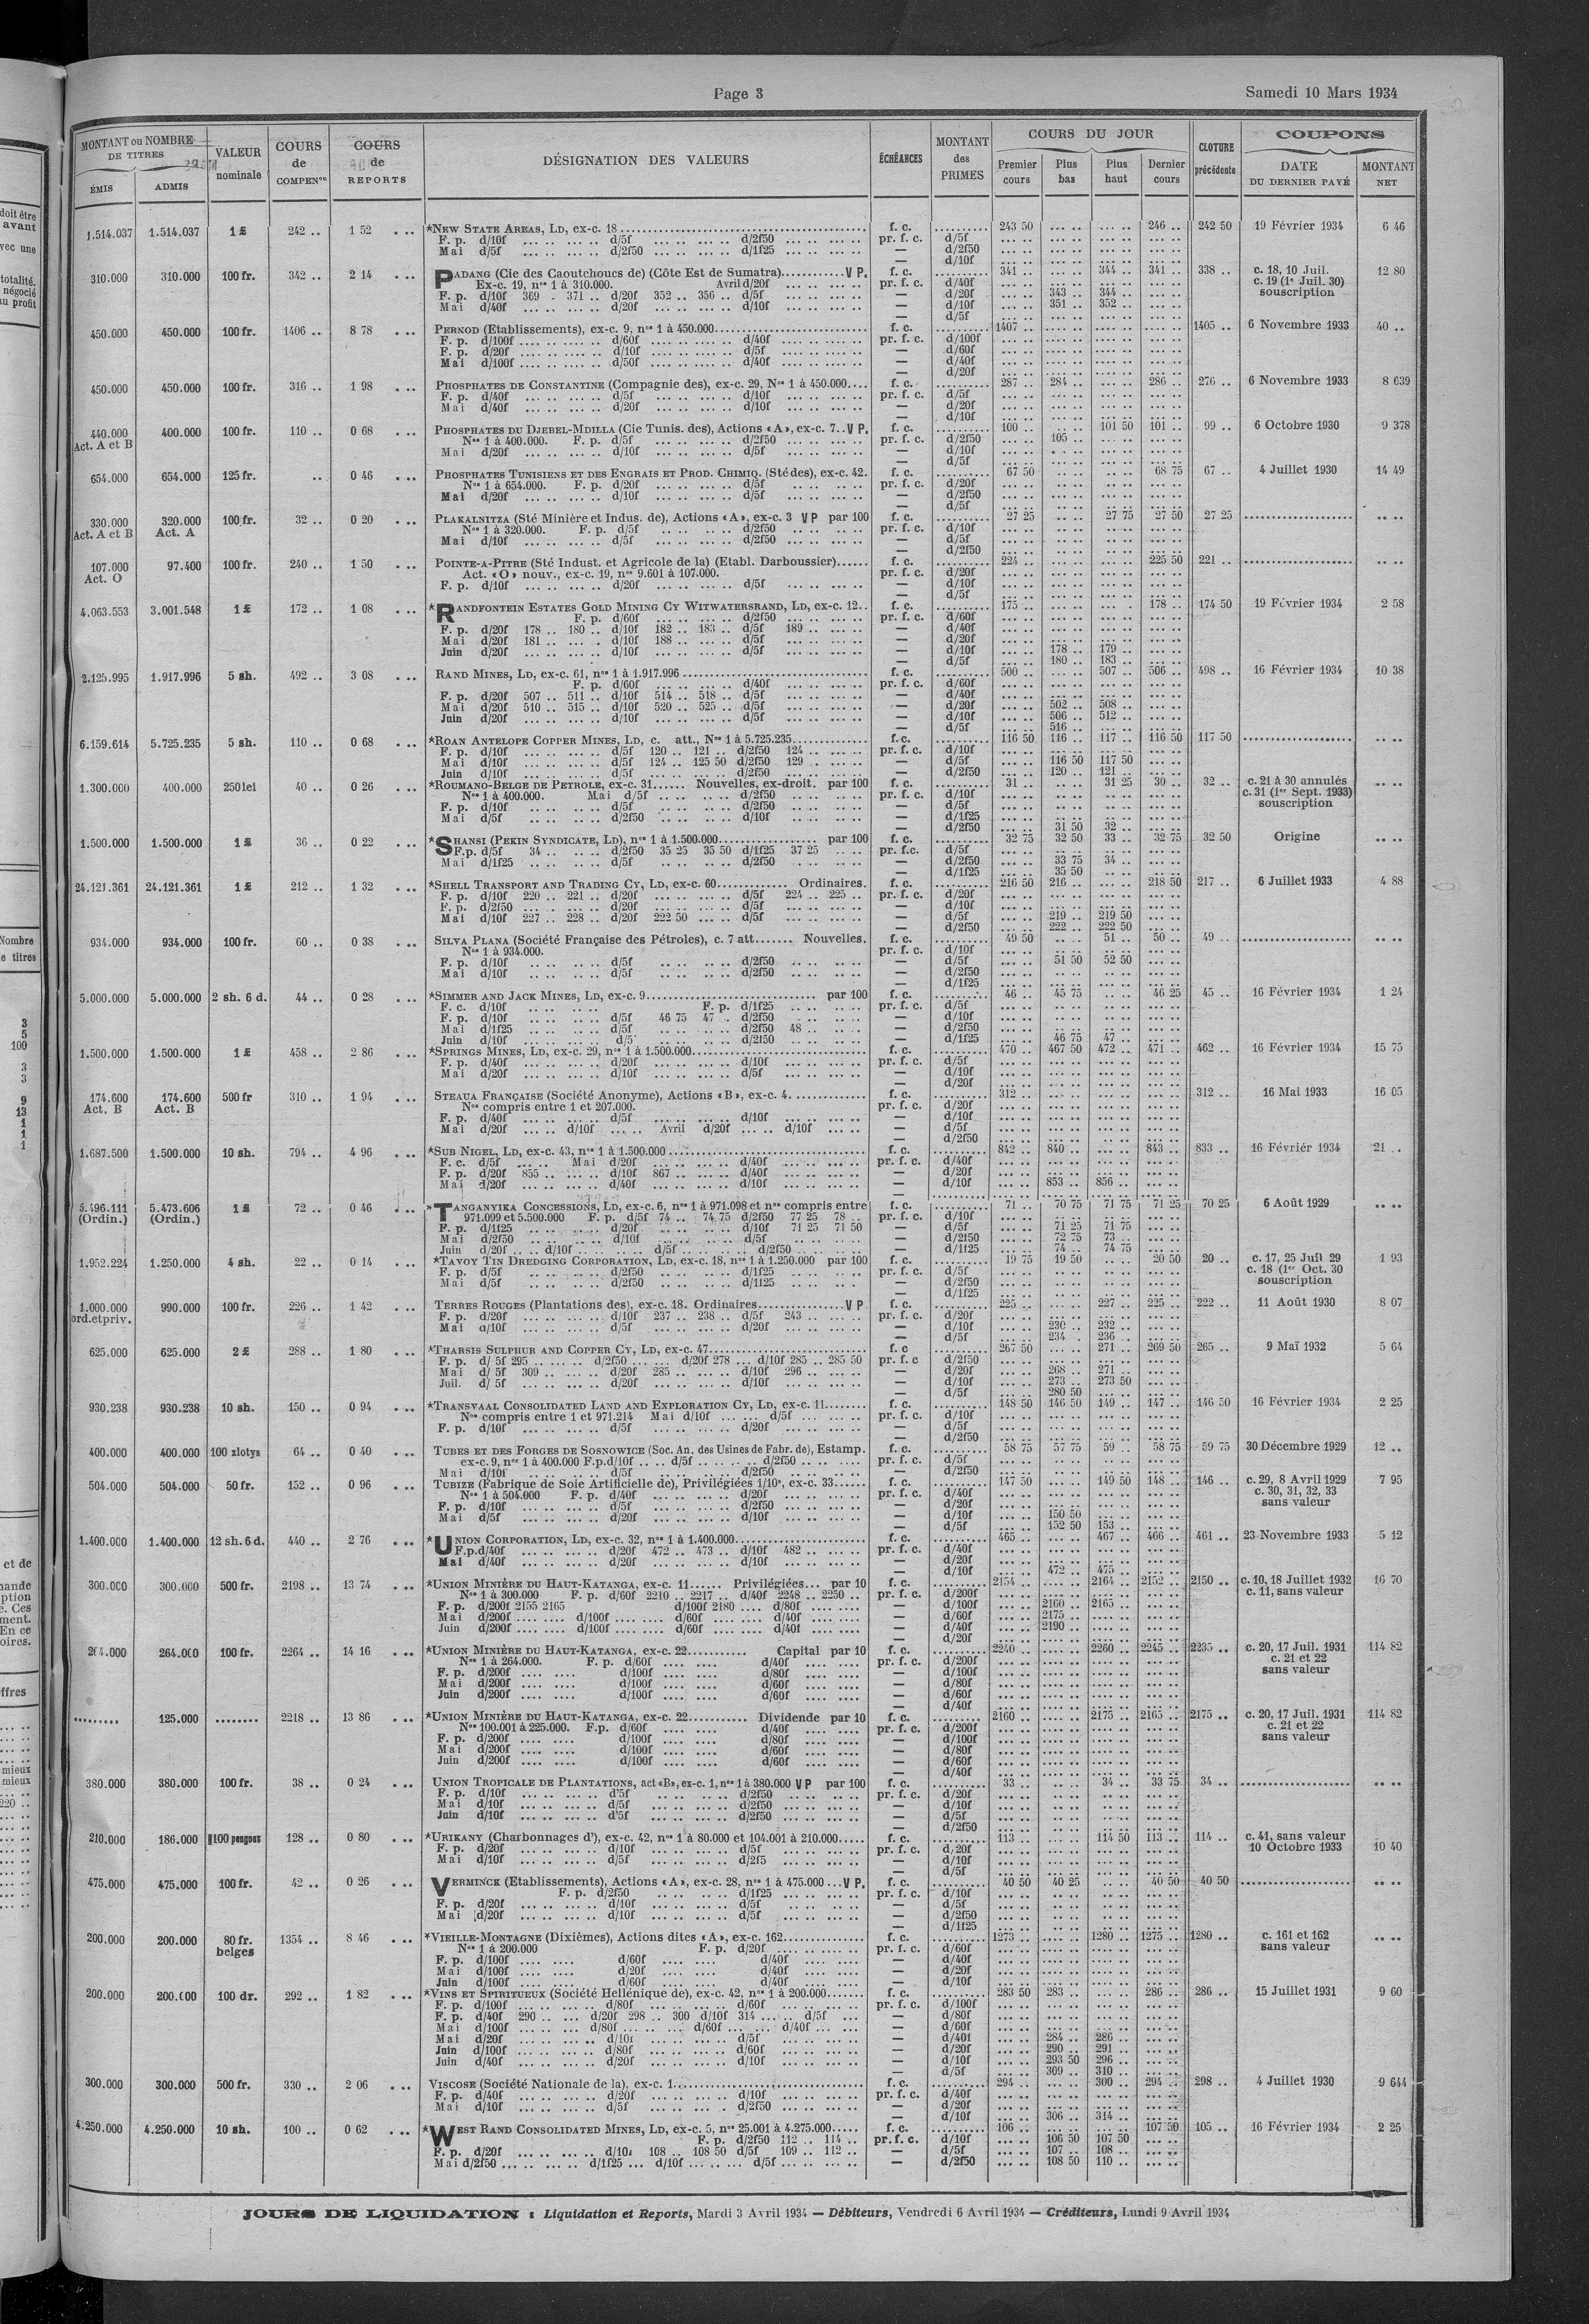 Page 3
Samedi 10 Mars 1934
MONTANT ou NOMBRE DE TITRES
ÉMIS
ADMIS
VALEUR nominale
COURS de COMPENon
COURS de REPORTS
DÉSIGNATION DES VALEURS
ÉCHÉANCES
MONTANT des PRIMES
COURS DU JOUR
Premier cours
Plus bas
Plus haut
Dernier cours
CLOTURE précédente
COUPONS
DATE DU DERNIER PAYÉ
MONTANT NET
1.514.037 1.514.037 1 £ 242 .. 1 52 *NEW STATE AREAS, LD, ex-c. 18 f. c. 243 50 246 .. 242 50 19 Février 1934 6 46
F. p. d/10f d/5f d/2f50 pr. f. c. d/5f
Mai d/5f d/2f50 d/1f25 — d/2f50
— d/10f
310.000 310.000 100 fr. 342 .. 2 14 PADANG (Cie des Caoutchoucs de) (Côte Est de Sumatra) V P. f. c. 341 .. 344 .. 341 .. 338 .. c. 18, 10 Juil. 12 80
Ex-c. 19, nos 1 à 310.000. Avril d/20f pr. f. c. d/40f c. 19 (1er Juil. 30)
F. p. d/10f 369 . 371 .. d/20f 352 .. 356 .. d/5f — d/20f 343 .. 344 .. souscription
Mai d/40f d/20f d/10f — d/10f 351 .. 352 ..
— d/5f
450.000 450.000 100 fr. 1406 .. 8 78 PERNOD (Etablissements), ex-c. 9, nos 1 à 450.000 f. c. 1407 .. 1405 .. 6 Novembre 1933 40 ..
F. p. d/100f d/60f d/40f pr. f. c. d/100f
F. p. d/20f d/10f d/5f — d/60f
Mai d/100f d/50f d/40f — d/40f
— d/20f
450.000 450.000 100 fr. 316 .. 1 98 PHOSPHATES DE CONSTANTINE (Compagnie des), ex-c. 29, Nos 1 à 450.000 f. c. 287 .. 284 .. 286 .. 276 .. 6 Novembre 1933 8 639
F. p. d/40f d/5f d/10f pr. f. c. d/5f
Mai d/40f d/20f d/10f — d/20f
— d/10f
440.000 Act. A et B 400.000 100 fr. 110 .. 0 68 PHOSPHATES DU DJEBEL-MDILLA (Cie Tunis. des), Actions «A», ex-c. 7.. V P. f. c. 100 .. 101 50 101 .. 99 .. 6 Octobre 1930 9 378
Nos 1 à 400.000. F. p. d/5f d/2f50 pr. f. c. d/2f50 105 ..
Mai d/20f d/10f d/5f — d/10f
— d/5f
654.000 654.000 125 fr. .. 0 46 PHOSPHATES TUNISIENS ET DES ENGRAIS ET PROD. CHIMIQ. (Sté des), ex-c. 42. f. c. 67 50 68 75 67 .. 4 Juillet 1930 14 49
Nos 1 à 654.000. F. p. d/20f d/5f pr. f. c. d/20f
Mai d/20f d/10f d/5f — d/2f50
— d/5f
330.000 Act. A et B 320.000 Act. A 100 fr. 32 .. 0 20 PLAKALNITZA (Sté Minière et Indus. de), Actions «A», ex-c. 3 V P par 100 f. c. 27 25 27 75 27 50 27 25
Nos 1 à 320.000. F. p. d/5f d/2f50 pr. f. c. d/10f
Mai d/10f d/5f d/2f50 — d/5f
— d/2f50
107.000 Act. O 97.400 100 fr. 240 .. 1 50 POINTE-A-PITRE (Sté Indust. et Agricole de la) (Etabl. Darboussier) f. c. 224 .. 225 50 221 ..
Act. «O» nouv., ex-c. 19, nos 9.601 à 107.000. pr. f. c. d/20f
F. p. d/10f d/20f d/5f — d/10f
— d/5f
4.063.553 3.001.548 1 £ 172 .. 1 08 *RANDFONTEIN ESTATES GOLD MINING CY WITWATERSRAND, LD, ex-c. 12.. f. c. 175 .. 178 .. 174 50 19 Février 1934 2 58
F. p. d/60f d/2f50 pr. f. c. d/60f
F. p. d/20f 178 .. 180 .. d/10f 182 .. 183 .. d/5f 189 .. — d/40f
Mai d/20f 181 .. d/10f 188 .. d/5f — d/20f
Juin d/20f d/10f d/5f — d/10f 178 .. 179 ..
— d/5f 180 .. 183 ..
2.125.995 1.917.996 5 sh. 492 .. 3 08 RAND MINES, LD, ex-c. 61, nos 1 à 1.917.996 f. c. 500 .. 507 .. 506 .. 498 .. 16 Février 1934 10 38
F. p. d/60f d/40f pr. f. c. d/60f
F. p. d/20f 507 .. 511 .. d/10f 514 .. 518 .. d/5f — d/40f
Mai d/20f 510 .. 515 .. d/10f 520 .. 525 .. d/5f — d/20f 502 .. 508 ..
Juin d/20f d/10f d/5f — d/10f 506 .. 512 ..
— d/5f 516 ..
6.159.614 5.725.235 5 sh. 110 .. 0 68 *ROAN ANTELOPE COPPER MINES, LD, c. att., Nos 1 à 5.725.235 f. c. 116 50 116 .. 117 .. 116 50 117 50
F. p. d/10f d/5f 120 .. 121 .. d/2f50 124 .. pr. f. c. d/10f
Mai d/10f d/5f 124 .. 125 50 d/2f50 129 .. — d/5f 116 50 117 50
Juin d/10f d/5f d/2f50 — d/2f50 120 .. 121 ..
1.300.000 400.000 250 lei 40 .. 0 26 *ROUMANO-BELGE DE PETROLE, ex-c. 31 Nouvelles, ex-droit. par 100 f. c. 31 .. 31 25 30 .. 32 .. c. 21 à 30 annulés
Nos 1 à 400.000. Mai d/5f d/2f50 pr. f. c. d/10f c. 31 (1er Sept. 1933)
F. p. d/10f d/5f d/2f50 — d/5f souscription
Mai d/5f d/2f50 d/10f — d/1f25
— d/2f50 31 50 32 ..
1.500.000 1.500.000 1 £ 36 .. 0 22 *SHANSI (PEKIN SYNDICATE, LD), nos 1 à 1.500.000 par 100 f. c. 32 75 32 50 33 .. 32 75 32 50 Origine
F.p. d/5f 34 .. d/2f50 35 25 35 50 d/1f25 37 25 pr. f.c. d/5f
Mai d/1f25 d/5f d/2f50 — d/2f50 33 75 34 ..
— d/1f25 35 50
24.121.361 24.121.361 1 £ 212 .. 1 32 *SHELL TRANSPORT AND TRADING CY, LD, ex-c. 60 Ordinaires. f. c. 216 50 216 .. 218 50 217 .. 6 Juillet 1933 4 88
F. p. d/10f 220 .. 221 .. d/20f d/5f 224 .. 225 .. pr. f. c. d/20f
F. p. d/2f50 d/20f d/5f — d/10f
Mai d/10f 227 .. 228 .. d/20f 222 50 d/5f — d/5f 219 .. 219 50
— d/2f50 222 .. 222 50
934.000 934.000 100 fr. 60 .. 0 38 SILVA PLANA (Société Française des Pétroles), c. 7 att. Nouvelles. f. c. 49 50 51 .. 50 .. 49 ..
Nos 1 à 934.000. pr. f. c. d/10f
F. p. d/10f d/5f d/2f50 — d/5f 51 50 52 50
Mai d/10f d/5f d/2f50 — d/2f50
— d/1f25
5.000.000 5.000.000 2 sh. 6 d. 44 .. 0 28 *SIMMER AND JACK MINES, LD, ex-c. 9 par 100 f. c. 46 .. 45 75 46 25 45 .. 16 Février 1934 1 24
F. c. d/10f F. p. d/1f25 pr. f. c. d/5f
F. p. d/10f d/5f 46 75 47 .. d/2f50 — d/10f
Mai d/1f25 d/5f d/2f50 48 .. — d/2f50
Juin d/10f d/5 d/2f50 — d/1f25 46 75 47 ..
1.500.000 1.500.000 1 £ 458 .. 2 86 *SPRINGS MINES, LD, ex-c. 29, nos 1 à 1.500.000 f. c. 470 .. 467 50 472 .. 471 .. 462 .. 16 Février 1934 15 75
F. p. d/40f d/20f d/10f pr. f. c. d/5f
Mai d/20f d/10f d/5f — d/10f
— d/20f
174.600 Act. B 174.600 Act. B 500 fr 310 .. 1 94 STEAUA FRANÇAISE (Société Anonyme), Actions «B», ex-c. 4 f. c. 312 .. 312 .. 16 Mai 1933 16 05
Nos compris entre 1 et 207.000. pr. f. c. d/20f
F. p. d/40f d/5f d/10f — d/10f
Mai d/20f d/10f Avril d/20f d/10f — d/5f
— d/2f50
1.687.500 1.500.000 10 sh. 794 .. 4 96 *SUB NIGEL, LD, ex-c. 43, nos 1 à 1.500.000 f. c. 842 .. 840 .. 843 .. 833 .. 16 Février 1934 21 ..
F. c. d/5f Mai d/20f d/40f pr. f. c. d/40f
F. p. d/20f 855 .. d/10f 867 .. d/40f — d/20f
Mai d/20f d/40f d/10f — d/10f 853 .. 856 ..
5.496.111 (Ordin.) 5.473.606 (Ordin.) 1 £ 72 .. 0 46 *TANGANYIKA CONCESSIONS, LD, ex-c. 6, nos 1 à 971.098 et nos compris entre f. c. 71 .. 70 75 71 75 71 25 70 25 6 Août 1929
971.099 et 5.500.000 F. p. d/5f 74 .. 74 75 d/2f50 77 25 78 .. pr. f. c. d/10f
F. p. d/1f25 d/20f d/10f 71 25 71 50 — d/5f 71 25 71 75
Mai d/2f50 d/10f d/5f — d/2f50 72 75 73 ..
Juin d/20f d/10f d/5f d/2f50 — d/1f25 74 .. 74 75
1.952.224 1.250.000 4 sh. 22 .. 0 14 *TAVOY TIN DREDGING CORPORATION, LD, ex-c. 18, nos 1 à 1.250.000 par 100 f. c. 19 75 19 50 20 50 20 .. c. 17, 25 Juil 29 1 93
F. p. d/5f d/2f50 d/1f25 pr. f. c. d/5f c. 18 (1er Oct. 30
Mai d/5f d/2f50 d/1f25 — d/2f50 souscription
— d/1f25
1.000.000 ord.etpriv. 990.000 100 fr. 226 .. 1 42 TERRES ROUGES (Plantations des), ex-c. 18. Ordinaires V P f. c. 225 .. 227 .. 225 .. 222 .. 11 Août 1930 8 07
F. p. d/20f d/10f 237 .. 238 .. d/5f 243 .. pr. f. c. d/20f
Mai d/10f d/5f d/20f — d/10f 230 . 232 ..
— d/5f 234 . 236 ..
625.000 625.000 2 £ 288 .. 1 80 *THARSIS SULPHUR AND COPPER CY, LD, ex-c. 47 f. c 267 50 271 .. 269 50 265 .. 9 Mai 1932 5 64
F. p. d/ 5f 295 .. d/2f50 d/20f 278 d/10f 285 .. 285 50 pr. f. c d/2f50
Mai d/ 5f 309 .. d/20f 285 .. d/10f 296 .. — d/20f 268 .. 271 ..
Juil. d/ 5f d/20f d/10f — d/10f 273 .. 273 50
— d/5f 280 50
930.238 930.238 10 sh. 150 .. 0 94 *TRANSVAAL CONSOLIDATED LAND AND EXPLORATION CY, LD, ex-c. 11 f. c. 148 50 146 50 149 .. 147 .. 146 50 16 Février 1934 2 25
Nos compris entre 1 et 971.214 Mai d/10f d/5f pr. f. c. d/10f
F. p. d/10f d/5f d/20f — d/5f
— d/2f50
400.000 400.000 100 zlotys 64 .. 0 40 TUBES ET DES FORGES DE SOSNOWICE (Soc. An. des Usines de Fabr. de), Estamp. f. c. 58 75 57 75 59 .. 58 75 59 75 30 Décembre 1929 12 ..
ex-c. 9, nos 1 à 400.000 F.p.d/10f d/5f d/2f50 pr. f. c. d/5f
Mai d/10f d/5f d/2f50 — d/2f50
504.000 504.000 50 fr. 152 .. 0 96 TUBIZE (Fabrique de Soie Artificielle de), Privilégiées 1/10e, ex-c. 33 f. c. 147 50 149 50 148 .. 146 .. c. 29, 8 Avril 1929 7 95
Nos 1 à 504.000 F. p. d/40f d/20f pr. f. c. d/40f c. 30, 31, 32, 33
F. p. d/10f d/5f d/2f50 — d/20f sans valeur
Mai d/5f d/20f d/10f — d/10f 150 50
— d/5f 152 50 153 ..
1.400.000 1.400.000 12 sh. 6 d. 440 .. 2 76 *UNION CORPORATION, LD, ex-c. 32, nos 1 à 1.400.000 f. c. 465 .. 467 .. 466 .. 461 .. 23 Novembre 1933 5 12
F.p.d/40f d/20f 472 .. 473 .. d/10f 482 .. pr. f. c. d/40f
Mai d/40f d/20f d/10f — d/20f
— d/10f 472 .. 475 ..
300.000 300.000 500 fr. 2198 .. 13 74 *UNION MINIÈRE DU HAUT-KATANGA, ex-c. 11 Privilégiées par 10 f. c. 2154 .. 2164 .. 2152 .. 2150 .. c. 10, 18 Juillet 1932 16 70
Nos 1 à 300.000 F. p. d/60f 2210 .. 2217 .. d/40f 2248 .. 2250 .. pr. f. c. d/200f c. 11, sans valeur
F. p. d/200f 2155 2165 d/100f 2180 d/80f — d/100f 2160 .. 2165 ..
Mai d/200f d/100f d/60f d/40f — d/60f 2175 ..
Juin d/200f d/100f d/60f d/40f — d/40f 2190 ..
— d/20f
264.000 264.000 100 fr. 2264 .. 14 16 *UNION MINIÈRE DU HAUT-KATANGA, ex-c. 22 Capital par 10 f. c. 2240 .. 2260 .. 2245 .. 2235 .. c. 20, 17 Juil. 1931 114 82
Nos 1 à 264.000. F. p. d/60f d/40f pr. f. c. d/200f c. 21 et 22
F. p. d/200f d/100f d/80f — d/100f sans valeur
Mai d/200f d/100f d/60f — d/80f
Juin d/200f d/100f d/60f — d/60f
— d/40f
125.000 2218 .. 13 86 *UNION MINIÈRE DU HAUT-KATANGA, ex-c. 22 Dividende par 10 f. c. 2160 .. 2175 .. 2165 .. 2175 .. c. 20, 17 Juil. 1931 114 82
Nos 100.001 à 225.000. F.p. d/60f d/40f pr. f. c. d/200f c. 21 et 22
F. p. d/200f d/100f d/80f — d/100f sans valeur
Mai d/200f d/100f d/60f — d/80f
Juin d/200f d/100f d/60f — d/60f
— d/40f
380.000 380.000 100 fr. 38 .. 0 24 UNION TROPICALE DE PLANTATIONS, act «B», ex-c. 1, nos 1 à 380.000 V P par 100 f. c. 33 .. 34 .. 33 75 34 ..
F. p. d/10f d/5f d/2f50 pr. f. c. d/20f
Mai d/10f d/5f d/2f50 — d/10f
Juin d/10f d/5f d/2f50 — d/5f
— d/2f50
210.000 186.000 100 pengous 128 .. 0 80 *URIKANY (Charbonnages d'), ex-c. 42, nos 1 à 80.000 et 104.001 à 210.000 f. c. 113 .. 114 50 113 .. 114 .. c. 41, sans valeur
F. p. d/20f d/10f d/5f pr. f. c. d/20f 10 Octobre 1933 10 40
Mai d/10f d/5f d/2f5 — d/10f
— d/5f
475.000 475.000 100 fr. 42 .. 0 26 VERMINCK (Etablissements), Actions «A», ex-c. 28, nos 1 à 475.000 V P. f. c. 40 50 40 25 40 50 40 50
F. p. d/2f50 d/1f25 pr. f. c. d/10f
F. p. d/20f d/10f d/5f — d/5f
Mai d/20f d/10f d/5f — d/2f50
— d/1f25
200.000 200.000 80 fr. belges 1354 .. 8 46 *VIEILLE-MONTAGNE (Dixièmes), Actions dites «A», ex-c. 162 f. c. 1273 .. 1280 .. 1275 .. 1280 .. c. 161 et 162
Nos 1 à 200.000 F. p. d/20f pr. f. c. d/60f sans valeur
F. p. d/100f d/60f d/40f — d/40f
Mai d/100f d/20f d/40f — d/20f
Juin d/100f d/60f d/40f — d/10f
200.000 200.000 100 dr. 292 .. 1 82 *VINS ET SPIRITUEUX (Société Hellénique de), ex-c. 42, nos 1 à 200.000 f. c. 283 50 283 .. 286 .. 286 .. 15 Juillet 1931 9 60
F. p. d/100f d/80f d/60f pr. f. c. d/100f
F. p. d/40f 290 .. d/20f 298 .. 300 d/10f 314 d/5f — d/80f
Mai d/100f d/80f d/60f d/40f — d/60f
Mai d/20f d/10f d/5f — d/40f 284 .. 286 ..
Juin d/100f d/80f d/60f — d/20f 290 .. 291 ..
Juin d/40f d/20f d/10f — d/10f 293 50 296 ..
— d/5f 309 .. 310 ..
300.000 300.000 500 fr. 330 .. 2 06 VISCOSE (Société Nationale de la), ex-c. 1 f. c. 294 .. 300 .. 294 .. 298 .. 4 Juillet 1930 9 644
F. p. d/40f d/20f d/10f pr. f. c. d/40f
Mai d/10f d/5f d/2f50 — d/20f
— d/10f 306 .. 314 ..
4.250.000 4.250.000 10 sh. 100 .. 0 62 *WEST RAND CONSOLIDATED MINES, LD, ex-c. 5, nos 25.001 à 4.275.000 f. c. 106 .. 107 50 105 .. 16 Février 1934 2 25
F. p. d/2f50 112 .. 114 .. pr. f. c. d/10f 106 50 107 50
F. p. d/20f d/10f 108 .. 108 50 d/5f 109 .. 112 .. — d/5f 107 .. 108 ..
Mai d/2f50 d/1f25 d/10f d/5f — d/2f50 108 50 110 ..
JOURS DE LIQUIDATION : Liquidation et Reports, Mardi 3 Avril 1934 — Débiteurs, Vendredi 6 Avril 1934 — Créditeurs, Lundi 9 Avril 1934